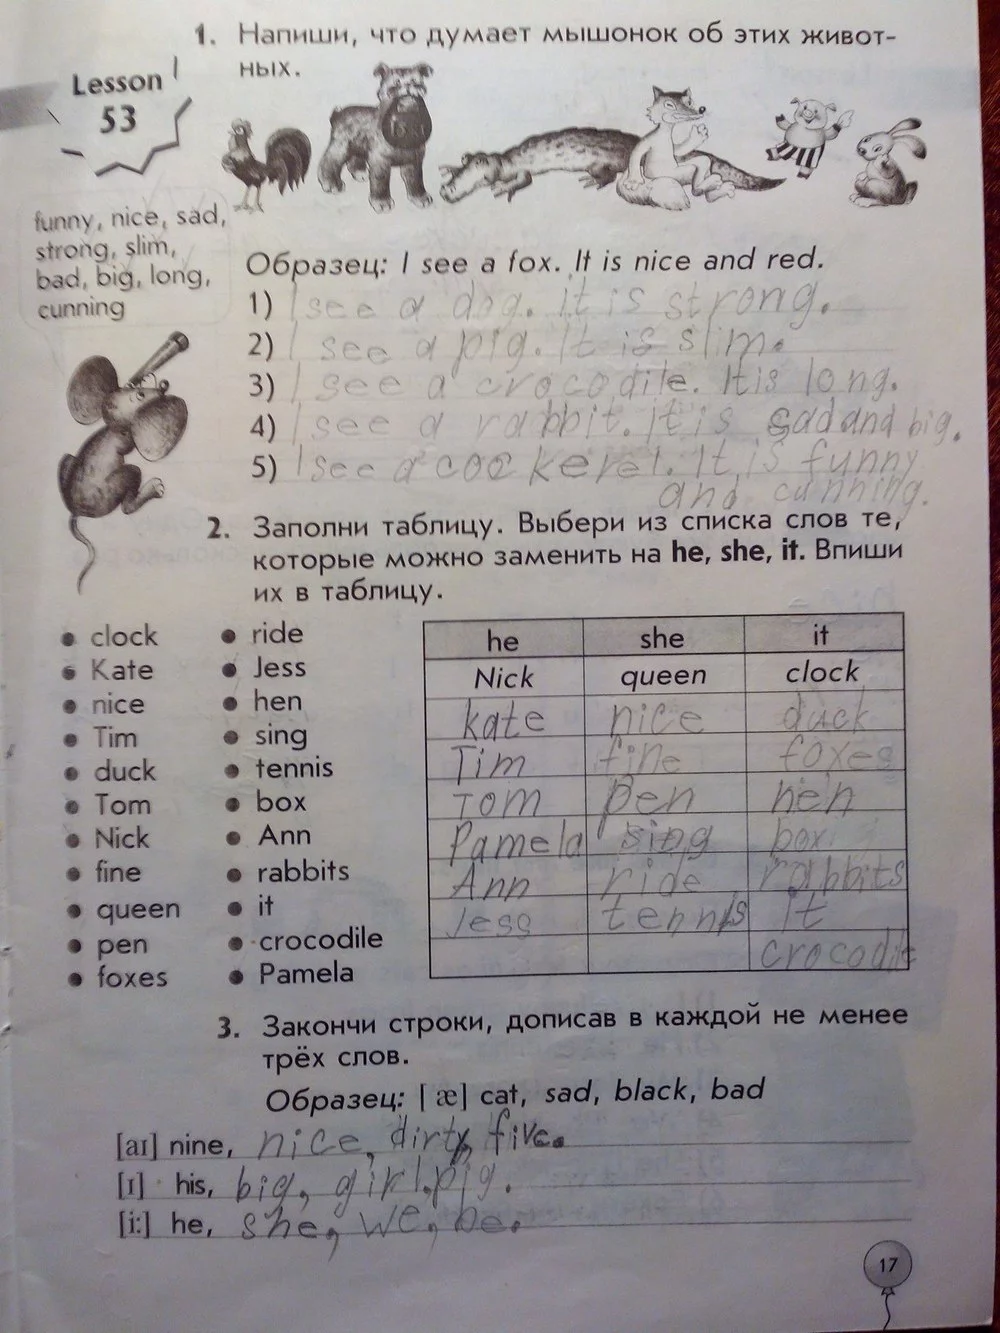 1. Напиши, что думает мышонок об этих живот-
ных.
Lesson
53
funny, nice, sad,
strong, slim,
bad, big, long,
cunning
Образец: I see a fox. It is nice and red.
1) I see a dog. It is strong.
2) I see a pig. It is slim.
3) I see a crocodile. It is long.
4) I see a rabbit. It is sad and big.
5) I see a cockerel. It is funny
and cunning.
2. Заполни таблицу. Выбери из списка слов те,
которые можно заменить на he, she, it. Впиши
их в таблицу.
• clock
• Kate
• nice
• Tim
• duck
• Tom
• Nick
• fine
• queen
• pen
• foxes
• ride
• Jess
• hen
• sing
• tennis
• box
• Ann
• rabbits
• it
• crocodile
• Pamela
he she it
Nick queen clock
kate nice duck
Tim fine foxes
Tom pen hen
Pamela sing box
Ann ride rabbits
Jess tennis it
crocodile
3. Закончи строки, дописав в каждой не менее
трёх слов.
Образец: [æ] cat, sad, black, bad
[aɪ] nine, nice, dirty, five.
[ɪ] his, big, girl, pig.
[i:] he, she, we, be.
17